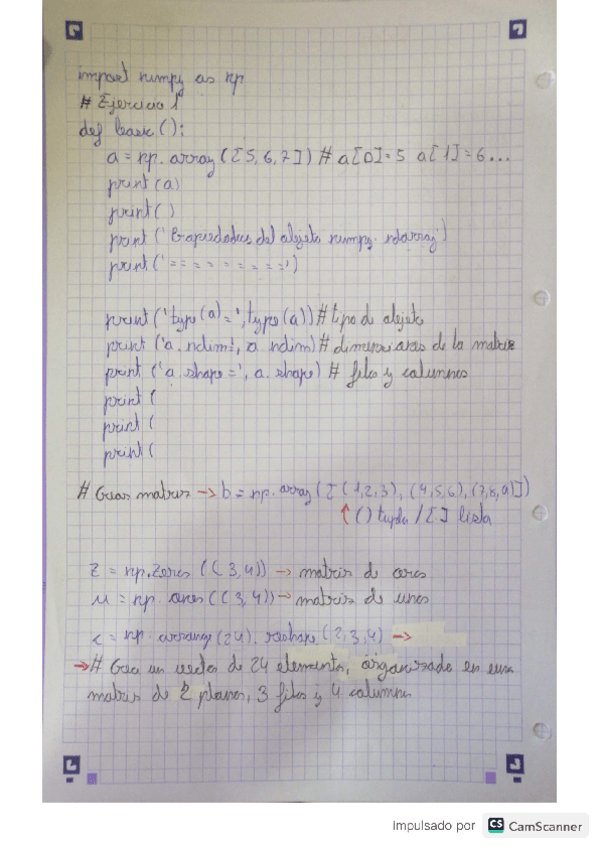 import numpy as np
# Ejercicio 1
def basic():
a = np. array ([5, 6, 7]) # a[0]=5 a[1]=6...
print (a)
print ( )
print ('Propiedades del objeto numpy. ndarray')
print ('= = = = = = = = =')
print ('type (a) =', type (a)) # tipo de objeto
print ('a. ndim', a. ndim) # dimensiones de la matriz
print ('a. shape =', a. shape) # filas y columnas
print (
print (
print (
# Creas matriz → b = np. array ([(1,2,3), (4,5,6), (7,8,9)])
↑ () tupla / [ ] lista
z = np.zeros ((3,4)) → matriz de ceros
u = np. ones ((3,4)) → matriz de unos
c = np. (24). reshape (2,3,4) →
→ # Crea un vector de 24 elementos, organizado en una
matriz de 2 planos, 3 filas y 4 columnas
Impulsado por CS CamScanner